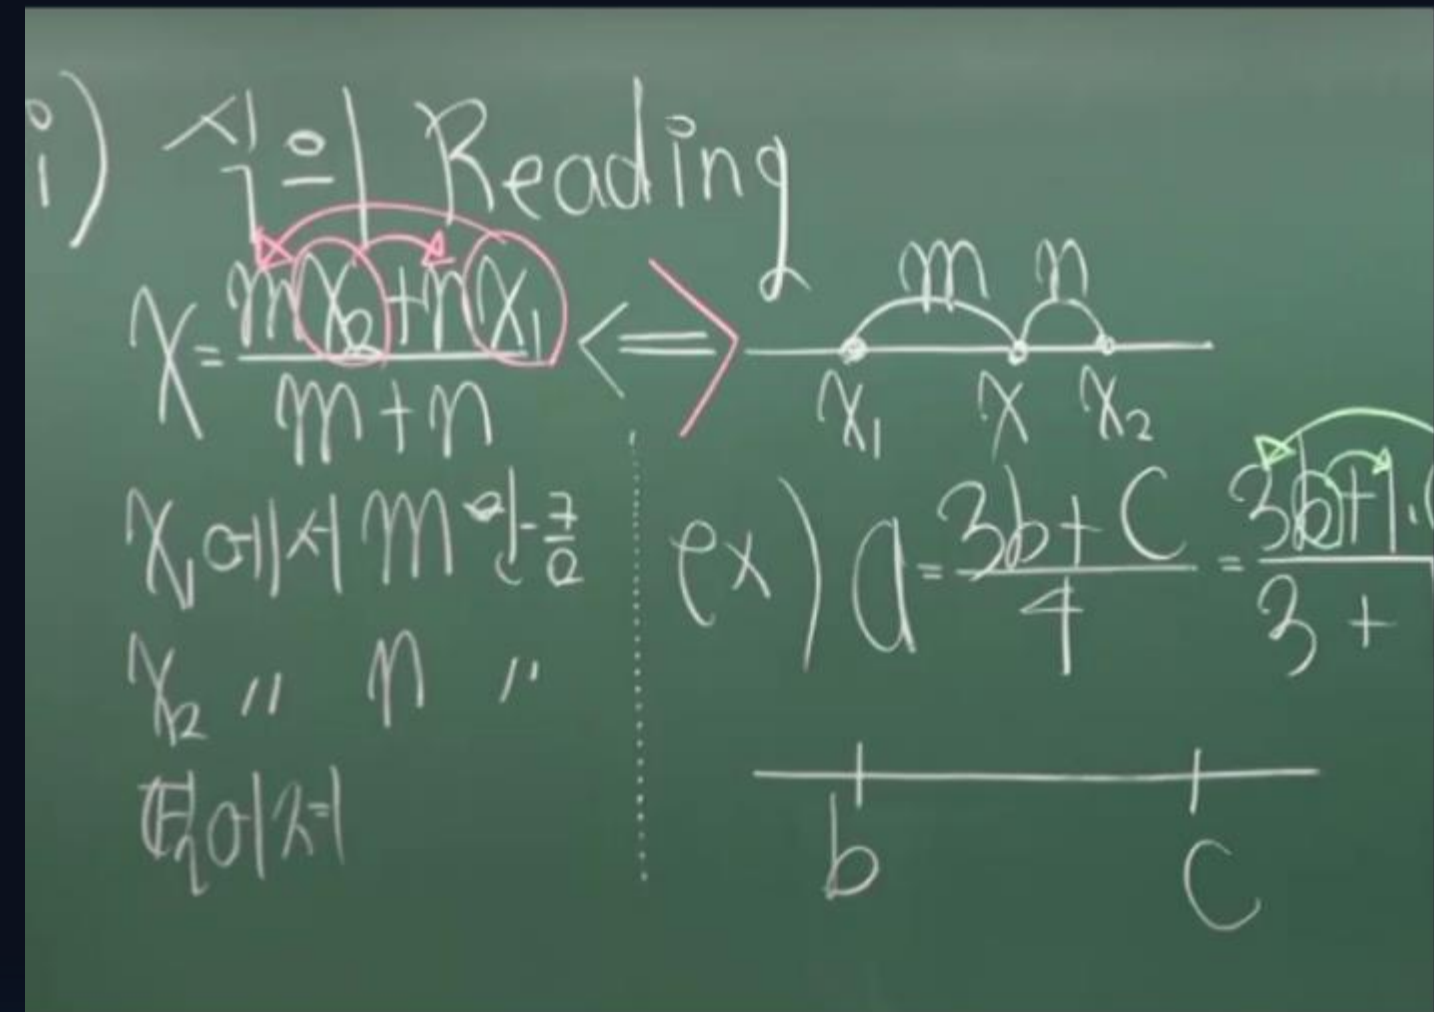 i) 식의 Reading
x = (mx₂ + nx₁)/(m + n) <=>
m n
x₁ x x₂
x₁에서 m 인근
x₂ 〃 n 〃
떨어진
ex) a = (3b + c)/4 = (3b + 1·(/(3 +
b c